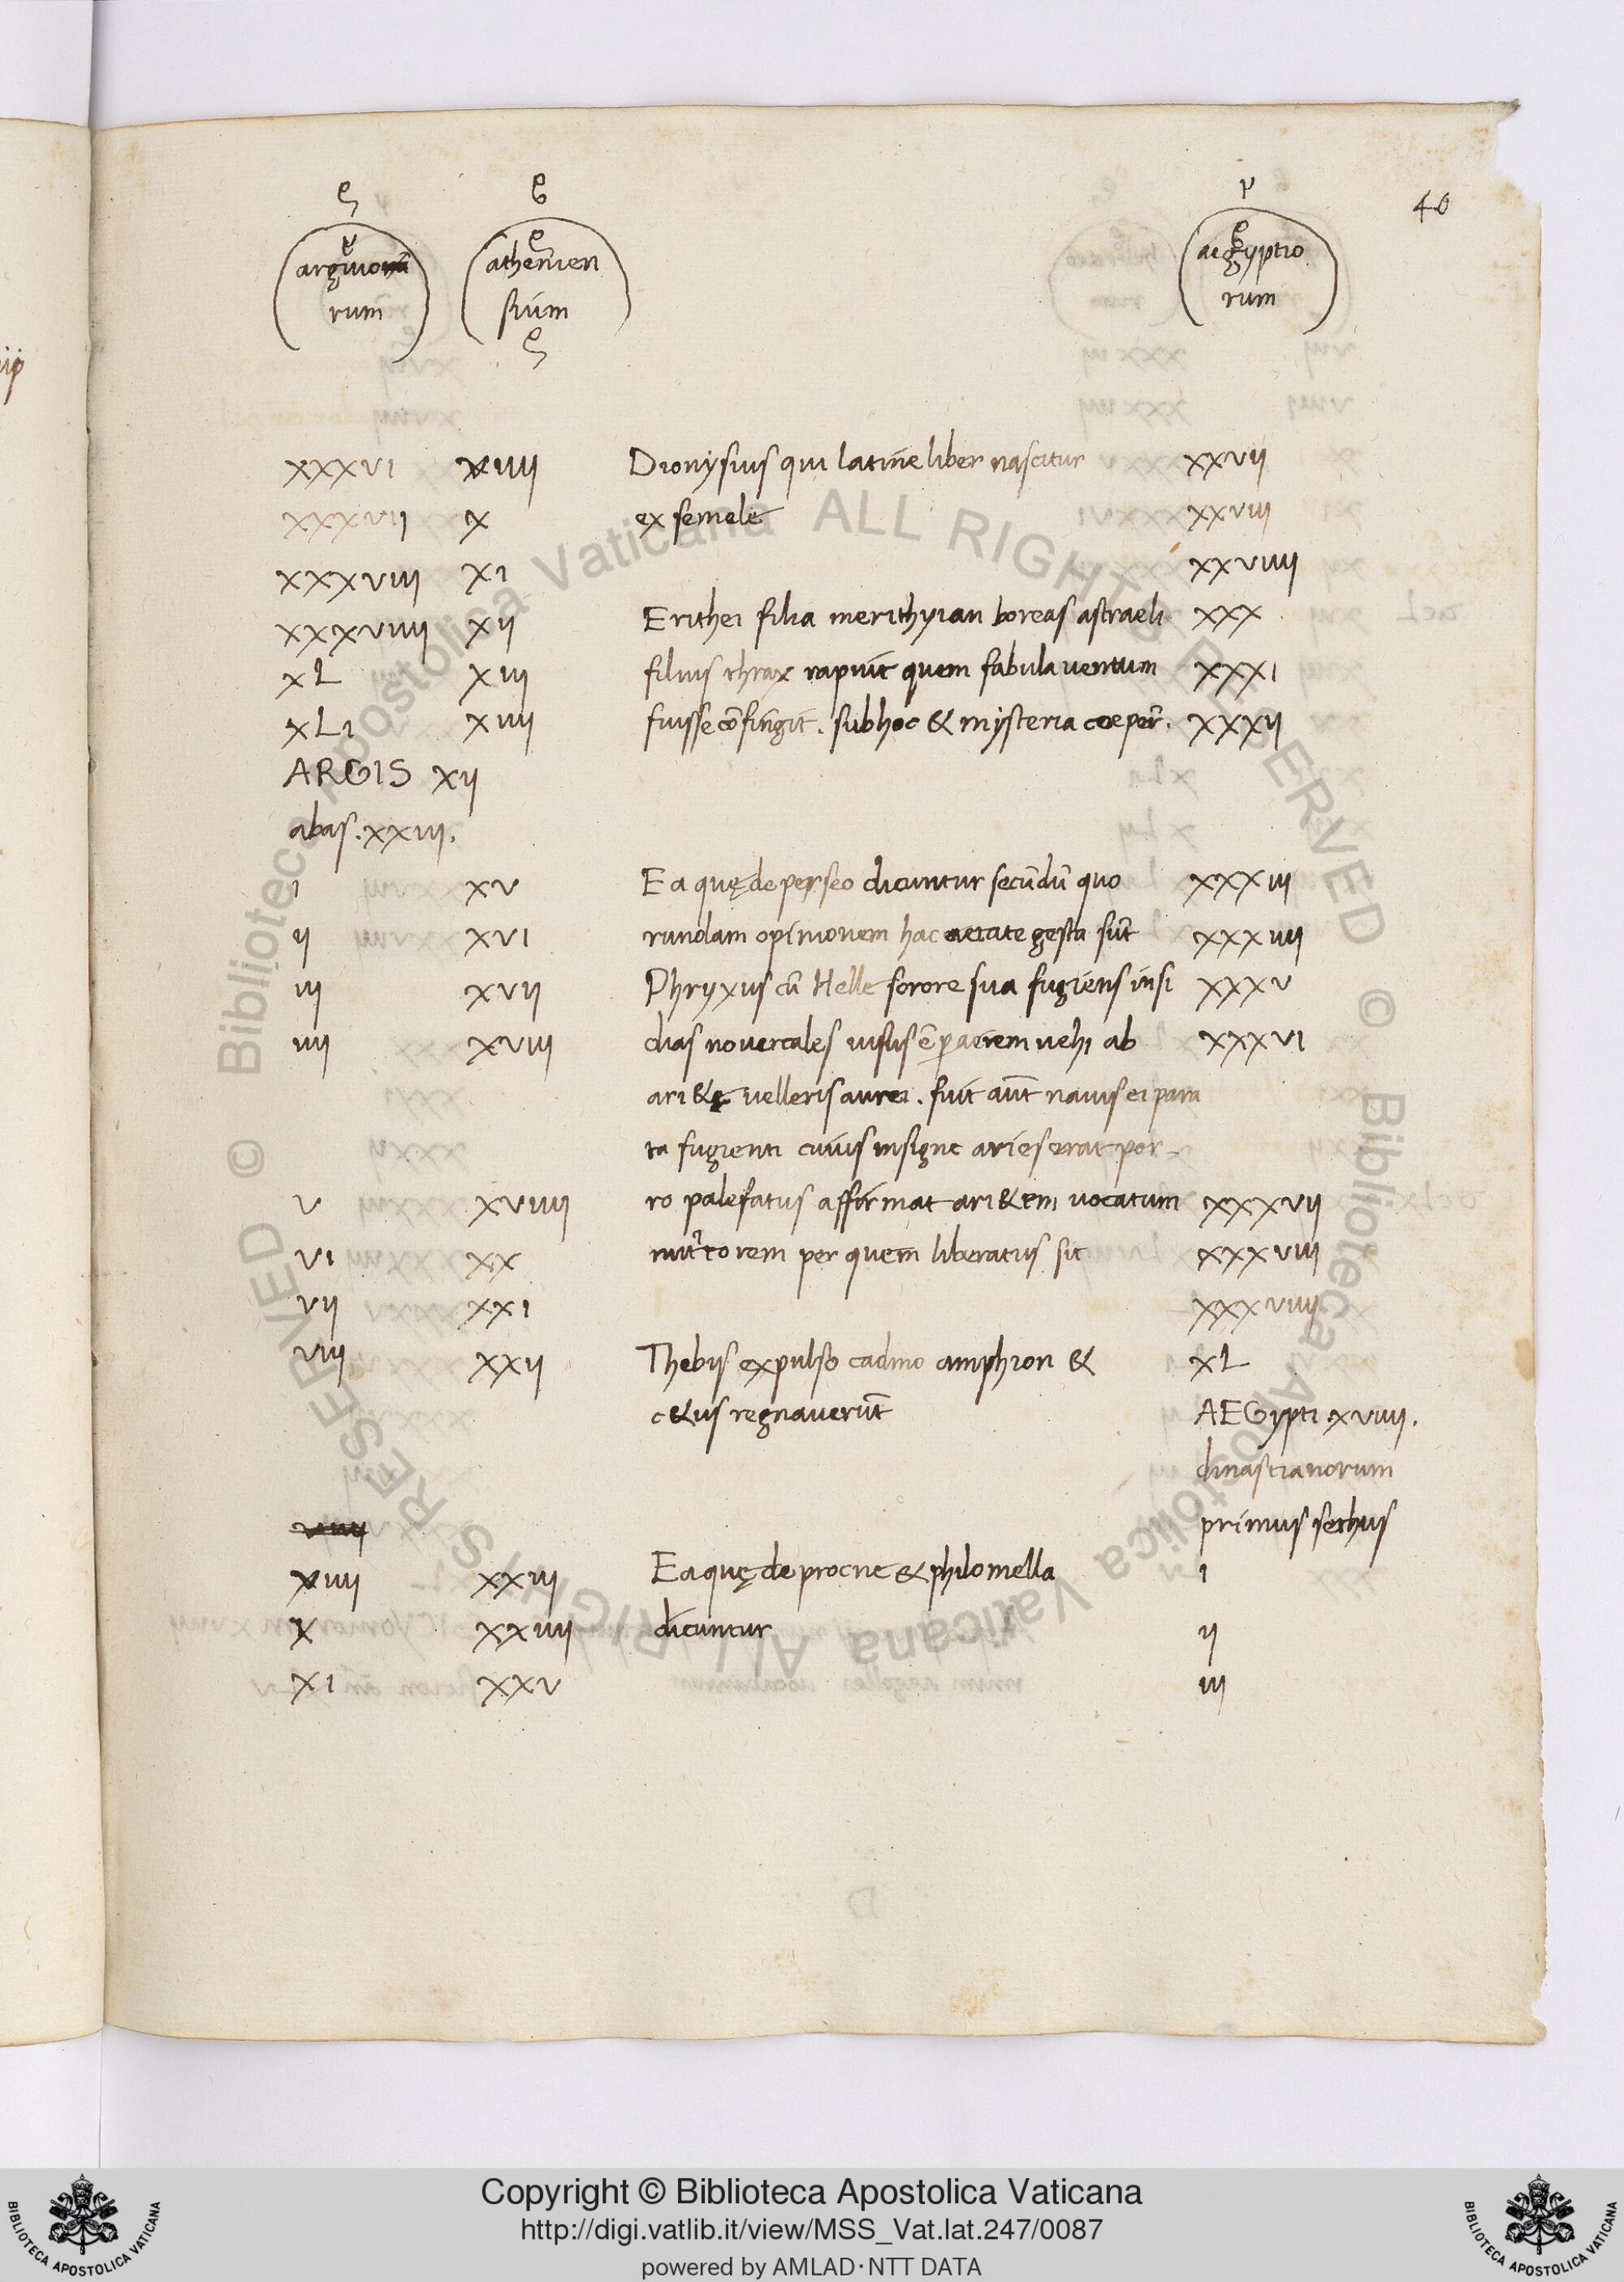 40
argiuo
rum
athenien
sium
aegyptio
rum
xxxvi viiii Dionysius qui latine liber nascitur xxvii
xxxvii x ex semele xxviii
xxxviii xi xxviiii
xxxviiii xii Erithei filia merithyian boreas astraeli xxx
xL xiii filius thrax rapuit quem fabula uentum xxxi
xLi xiiii fuisse cōfingit . sub hoc & mysteria coeper̄. xxxii
ARGIS xii
abas . xxiii .
i xv Ea quę de perseo dicuntur secūdū quo xxxiii
ii xvi rundam opinionem hac aetate gesta sūt xxxiiii
iii xvii Phryxus cū Helle sorore sua fugiens insi xxxv
iiii xviii dias nouercales uisus ē ꝑ aerem uehi ab xxxvi
ari&e uelleris aurei . fuit aūt nauis ei para
ta fugienti cuius insigne aries erat por-
v xviiii ro palefatus affirmat ari&em uocatum xxxvii
vi xx nutritorem per quem liberatus sit xxxviii
vii xxi xxxviiii
viii xxii Thebis expulso cadmo amphion & xL
c&us regnauerūt AEGypti . xviiii .
dinastianorum
viiii primus sethus
viiii xxiii Ea quę de procne & philomella i
x xxiiii dicuntur ii
xi xxv iii
Copyright © Biblioteca Apostolica Vaticana
http://digi.vatlib.it/view/MSS_Vat.lat.247/0087
powered by AMLAD·NTT DATA
BIBLIOTECA APOSTOLICA VATICANA
BIBLIOTECA APOSTOLICA VATICANA
© Biblioteca Apostolica Vaticana ALL RIGHTS RESERVED
© Biblioteca Apostolica Vaticana ALL RIGHTS RESERVED